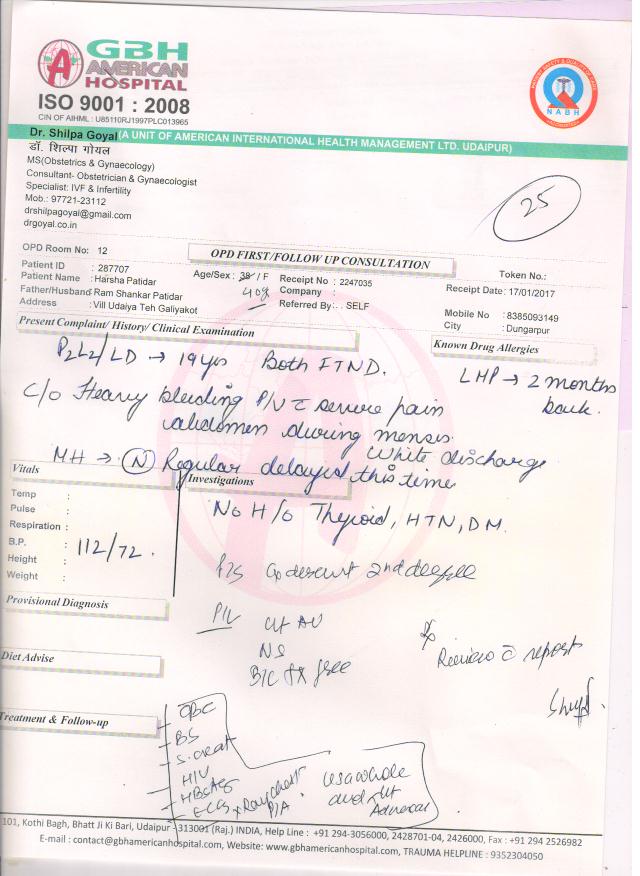 GBH
AMERICAN
HOSPITAL
ISO 9001 : 2008
CIN OF AIHML : U85110RJ1997PLC013965
NABH
Dr. Shilpa Goyal (A UNIT OF AMERICAN INTERNATIONAL HEALTH MANAGEMENT LTD. UDAIPUR)
डॉ. शिल्पा गोयल
MS(Obstetrics & Gynaecology)
Consultant- Obstetrician & Gynaecologist
Specialist: IVF & Infertility
Mob.: 97721-23112
drshilpagoyal@gmail.com
drgoyal.co.in
25
OPD Room No: 12
OPD FIRST/FOLLOW UP CONSULTATION
Token No.:
Patient ID : 287707
Age/Sex : 38 / F
Receipt No : 2247035
Receipt Date : 17/01/2017
Patient Name : Harsha Patidar
40y
Company :
Father/Husband Ram Shankar Patidar
Referred By : . SELF
Mobile No : 8385093149
Address : Vill Udaiya Teh Galiyakot
City : Dungarpur
Present Complaint/ History/ Clinical Examination
Known Drug Allergies
P2L2/LD → 19 yrs Both FTND.
LMP → 2 months
back.
C/o Heavy bleeding P/V c̄ severe pain
abdomen during menses.
White discharge
MH → (N) Regular delayed this time
Vitals
Investigations
Temp :
Pulse :
Respiration :
B.P. : 112/72.
Height :
Weight :
No H/o Thyroid, HTN, DM.
P/S Cx descent 2nd degree
Provisional Diagnosis
P/V Ut AV
NS
B/L fx free
Review c̄ report
Diet Advise
Treatment & Follow-up
CBC
BS
S. creat
HIV
HBsAg
ECG
X Ray chest
P/A
USG whole
abd
101, Kothi Bagh, Bhatt Ji Ki Bari, Udaipur - 313001 (Raj.) INDIA, Help Line : +91 294-3056000, 2428701-04, 2426000, Fax : +91 294 2526982
E-mail : contact@gbhamericanhospital.com, Website: www.gbhamericanhospital.com, TRAUMA HELPLINE : 9352304050